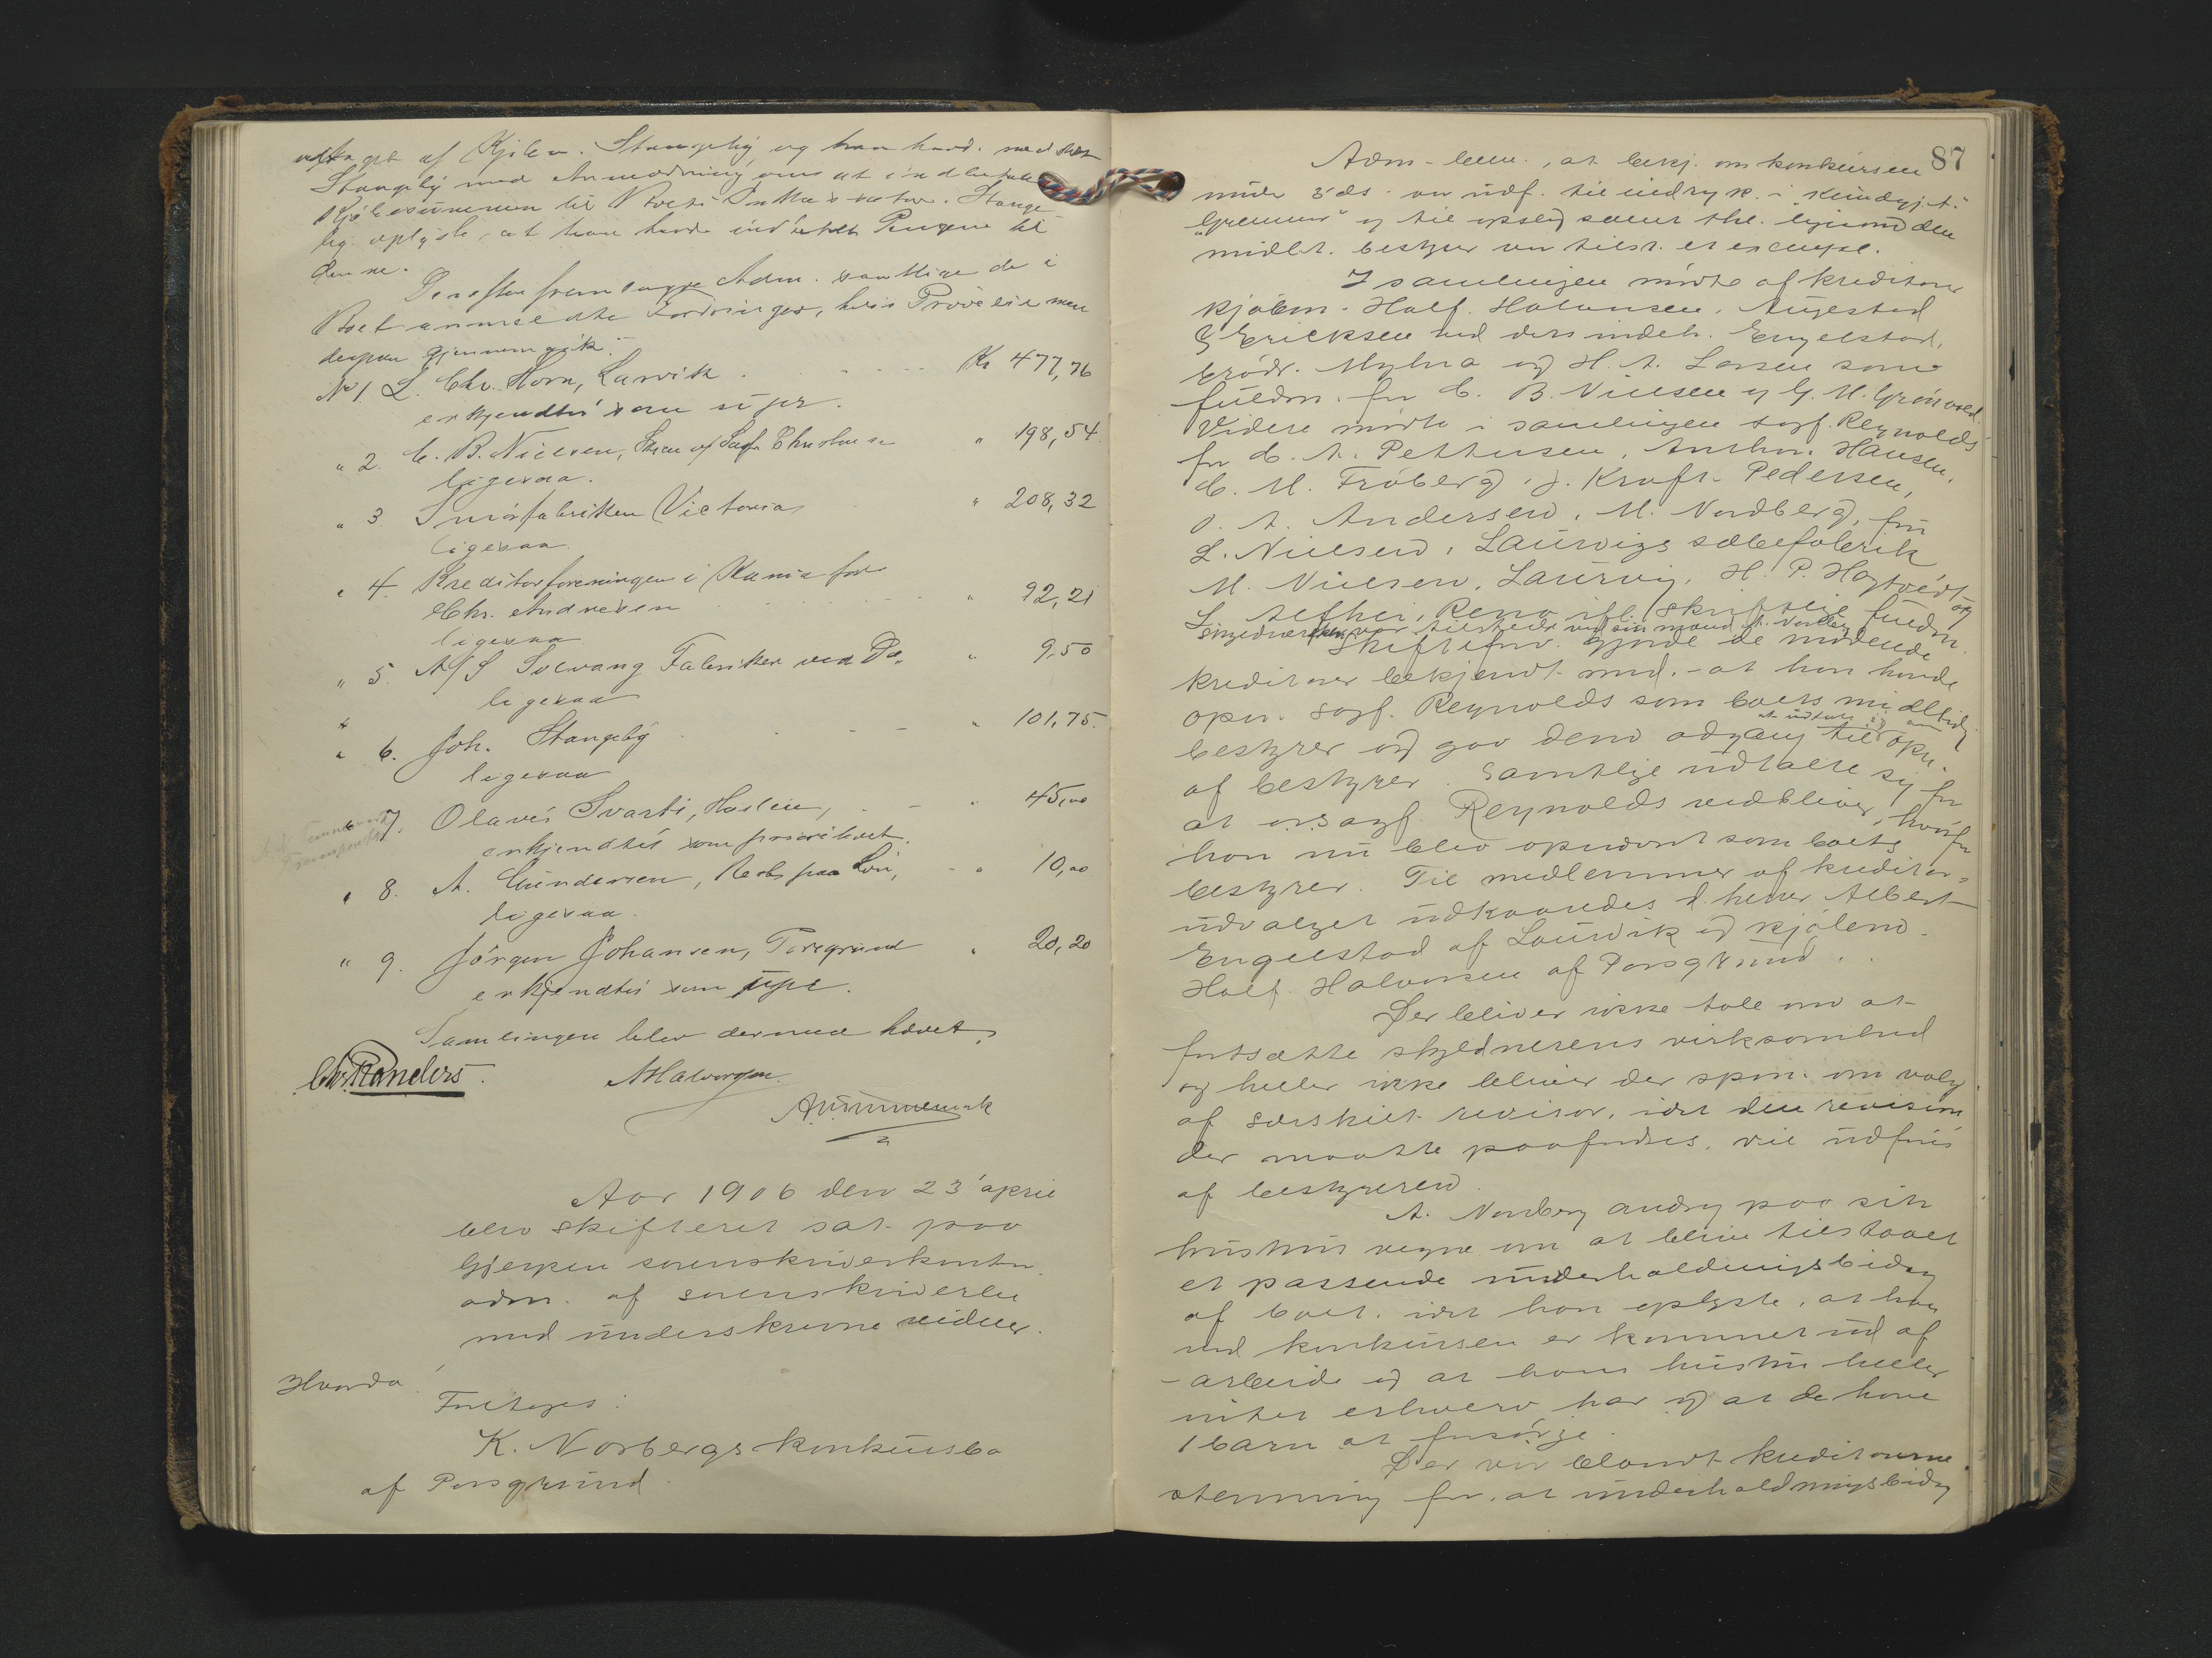 af Kjøbm. Stangeby og han havde
Stangeby med Anmodning om at indbetale
Kjøbesummen til Boets Stange-
by oplyste, at han havde indbetalt Pengene til
denne.
Derefter fremlagde Adm. samtlige de i
Boet anmeldte Fordringer, hvis Prøvelse man
derpaa gjennemgik.
No 1. L. Chr. Horn, Larvik Kr 477,76
erkjendtes som upr.
" 2. C. B. Nielsen, Skien " 198,54
ligesaa.
" 3 Smørfabrikken Victoria " 208,32
ligesaa.
" 4. Kreditorforeningen i Kania for
Chr. Andresen " 92,21
ligesaa
" 5. A/S Solvang Fabriker " 9,50
ligesaa
" 6. Joh. Stangeby " 101,75.
ligesaa
" 7. Olaves Svarti, " 45,00
erkjendtes som prioritert.
" 8. A. Gundersen, Rest paa Løn, " 10,00
ligesaa.
" 9. Jørgen Johansen, Porsgrund " 20,20
erkjendtes som upr.
Samlingen blev dermed hævet.
Chr. Randers. AHalvorsen
Aar 1906 den 23' april
blev skifteret sat paa
Gjerpen sorenskriverkontor
adm. af sorenskriveren
med underskrevne vidner.
Hvorda
Foretoges:
K. Norbergs konkursbo
af Porsgrund.
87
Adm. bem., at bekj. om konkursen
under 3 ds. var udf. til indryk. i "Kundgj.t."
"Grenmar" og til opslag samt tkl. ligesom den
midlt. bestyrer var tilst. et exempl.
I samlingen mødte af kreditorer
kjøbm. Half. Halvorsen, Augestad
& Ericksen ved ders indeh. Engelstad,
brødr. Myhra og H. A. Larsen som
fuldm. for C. B. Nielsen og G. M. Grønvold.
Videre mødte i samlingen sagf. Reynolds
for C. A. Pettersen, Anthon Hansen,
C. M. Frøberg, J. Kraft Pedersen,
O. A. Andersen, M. Nordberg, fru
L. Nielsen, Laurvigs sæbefabrik
M. Nielsen, Laurvig, H. P. Hagtvedt og
L. Aethei, Reno ifl. skriftlige fuldm.
var tilstede ved sin mand A. Norberg
Skifteforv. gjorde de mødende
kreditorer bekjendt med, at han havde
opn. sagf. Reynolds som boets midltidig
bestyrer og gav dem adgang til at udtale sig om opn.
af bestyrer. Samtlige udtalte sig for
at o.r.sagf. Reynolds vedbliver, hvorfor
han nu blev opnævnt som boets
bestyrer. Til medlemmer af kreditor-
udvalget udkaaredes d.herrer Albert
Engelstad af Laurvik og kjøbm.
Half. Halvorsen af Porsgrund.
Der bliver ikke tale om at
fortsætte skyldnerens virksomhed
og heller ikke bliver der spm. om valg
af særskilt revisor, idet den revision
der maatte paafordres, vil udføres
af bestyreren.
A. Norberg androg paa sin
hustrus vegne om at blive tilstaaet
et passende underholdningsbidrag
af boet, idet han oplyste, at han
ved konkursen er kommet ud af
arbeide og at hans hustru heller
intet erhverv har og at de have
1 barn at forsørge.
Der var blandt kreditorerne
stemning for, at underholdningsbidrag